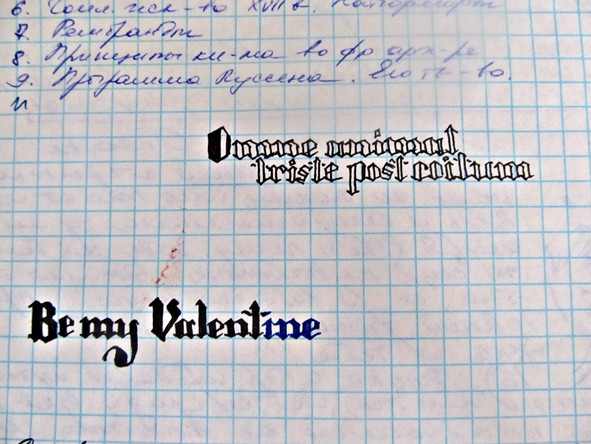 6. Голл. иск-во XVII в. Натюрморт
7. Рембрандт
8. Принципы кл-ма во фр арх-ре
9. Программа Пуссена. Его тв-во.
Omne animal
triste post coitum
Be my Valentine